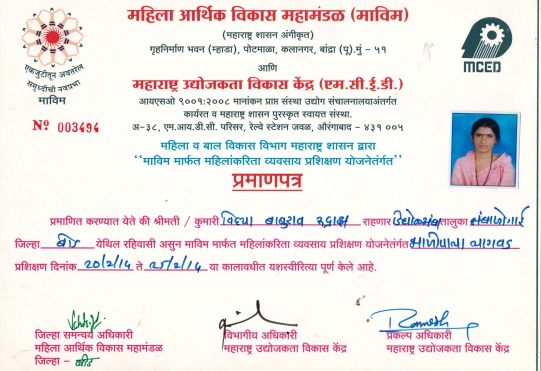 महिला आर्थिक विकास महामंडळ (माविम)
(महाराष्ट्र शासन अंगीकृत)
गृहनिर्माण भवन (म्हाडा), पोटमाळा, कलानगर, बांद्रा (पू).मुं - ५१
आणि
महाराष्ट्र उद्योजकता विकास केंद्र (एम.सी.ई.डी.)
आयएसओ ९००१:२००८ मानांकन प्राप्त संस्था उद्योग संचालनालयाअंतर्गत
कार्यरत व महाराष्ट्र शासन पुरस्कृत स्वायत्त संस्था.
अ-३८, एम.आय.डी.सी. परिसर, रेल्वे स्टेशन जवळ, औरंगाबाद - ४३१ ००५
एकजुटीतून अवतरेल
समृध्दीची नवप्रभा
माविम
MCED
Nº 003494
महिला व बाल विकास विभाग महाराष्ट्र शासन द्वारा
''माविम मार्फत महिलांकरिता व्यवसाय प्रशिक्षण योजनेतंर्गत''
प्रमाणपत्र
प्रमाणित करण्यात येते की श्रीमती / कुमारी विद्या बाबुराव रुद्राक्ष राहणार तालुका अंबाजोगाई
जिल्हा बीड येथिल रहिवासी असुन माविम मार्फत महिलांकरिता व्यवसाय प्रशिक्षण योजनेतंर्गत भाजीपाला लागवड
प्रशिक्षण दिनांक २०/२/१४ ते २५/२/१४ या कालावधीत यशस्वीरित्या पूर्ण केले आहे.
Ramesh
जिल्हा समन्वय अधिकारी
महिला आर्थिक विकास महामंडळ
जिल्हा - बीड
विभागीय अधिकारी
महाराष्ट्र उद्योजकता विकास केंद्र
प्रकल्प अधिकारी
महाराष्ट्र उद्योजकता विकास केंद्र